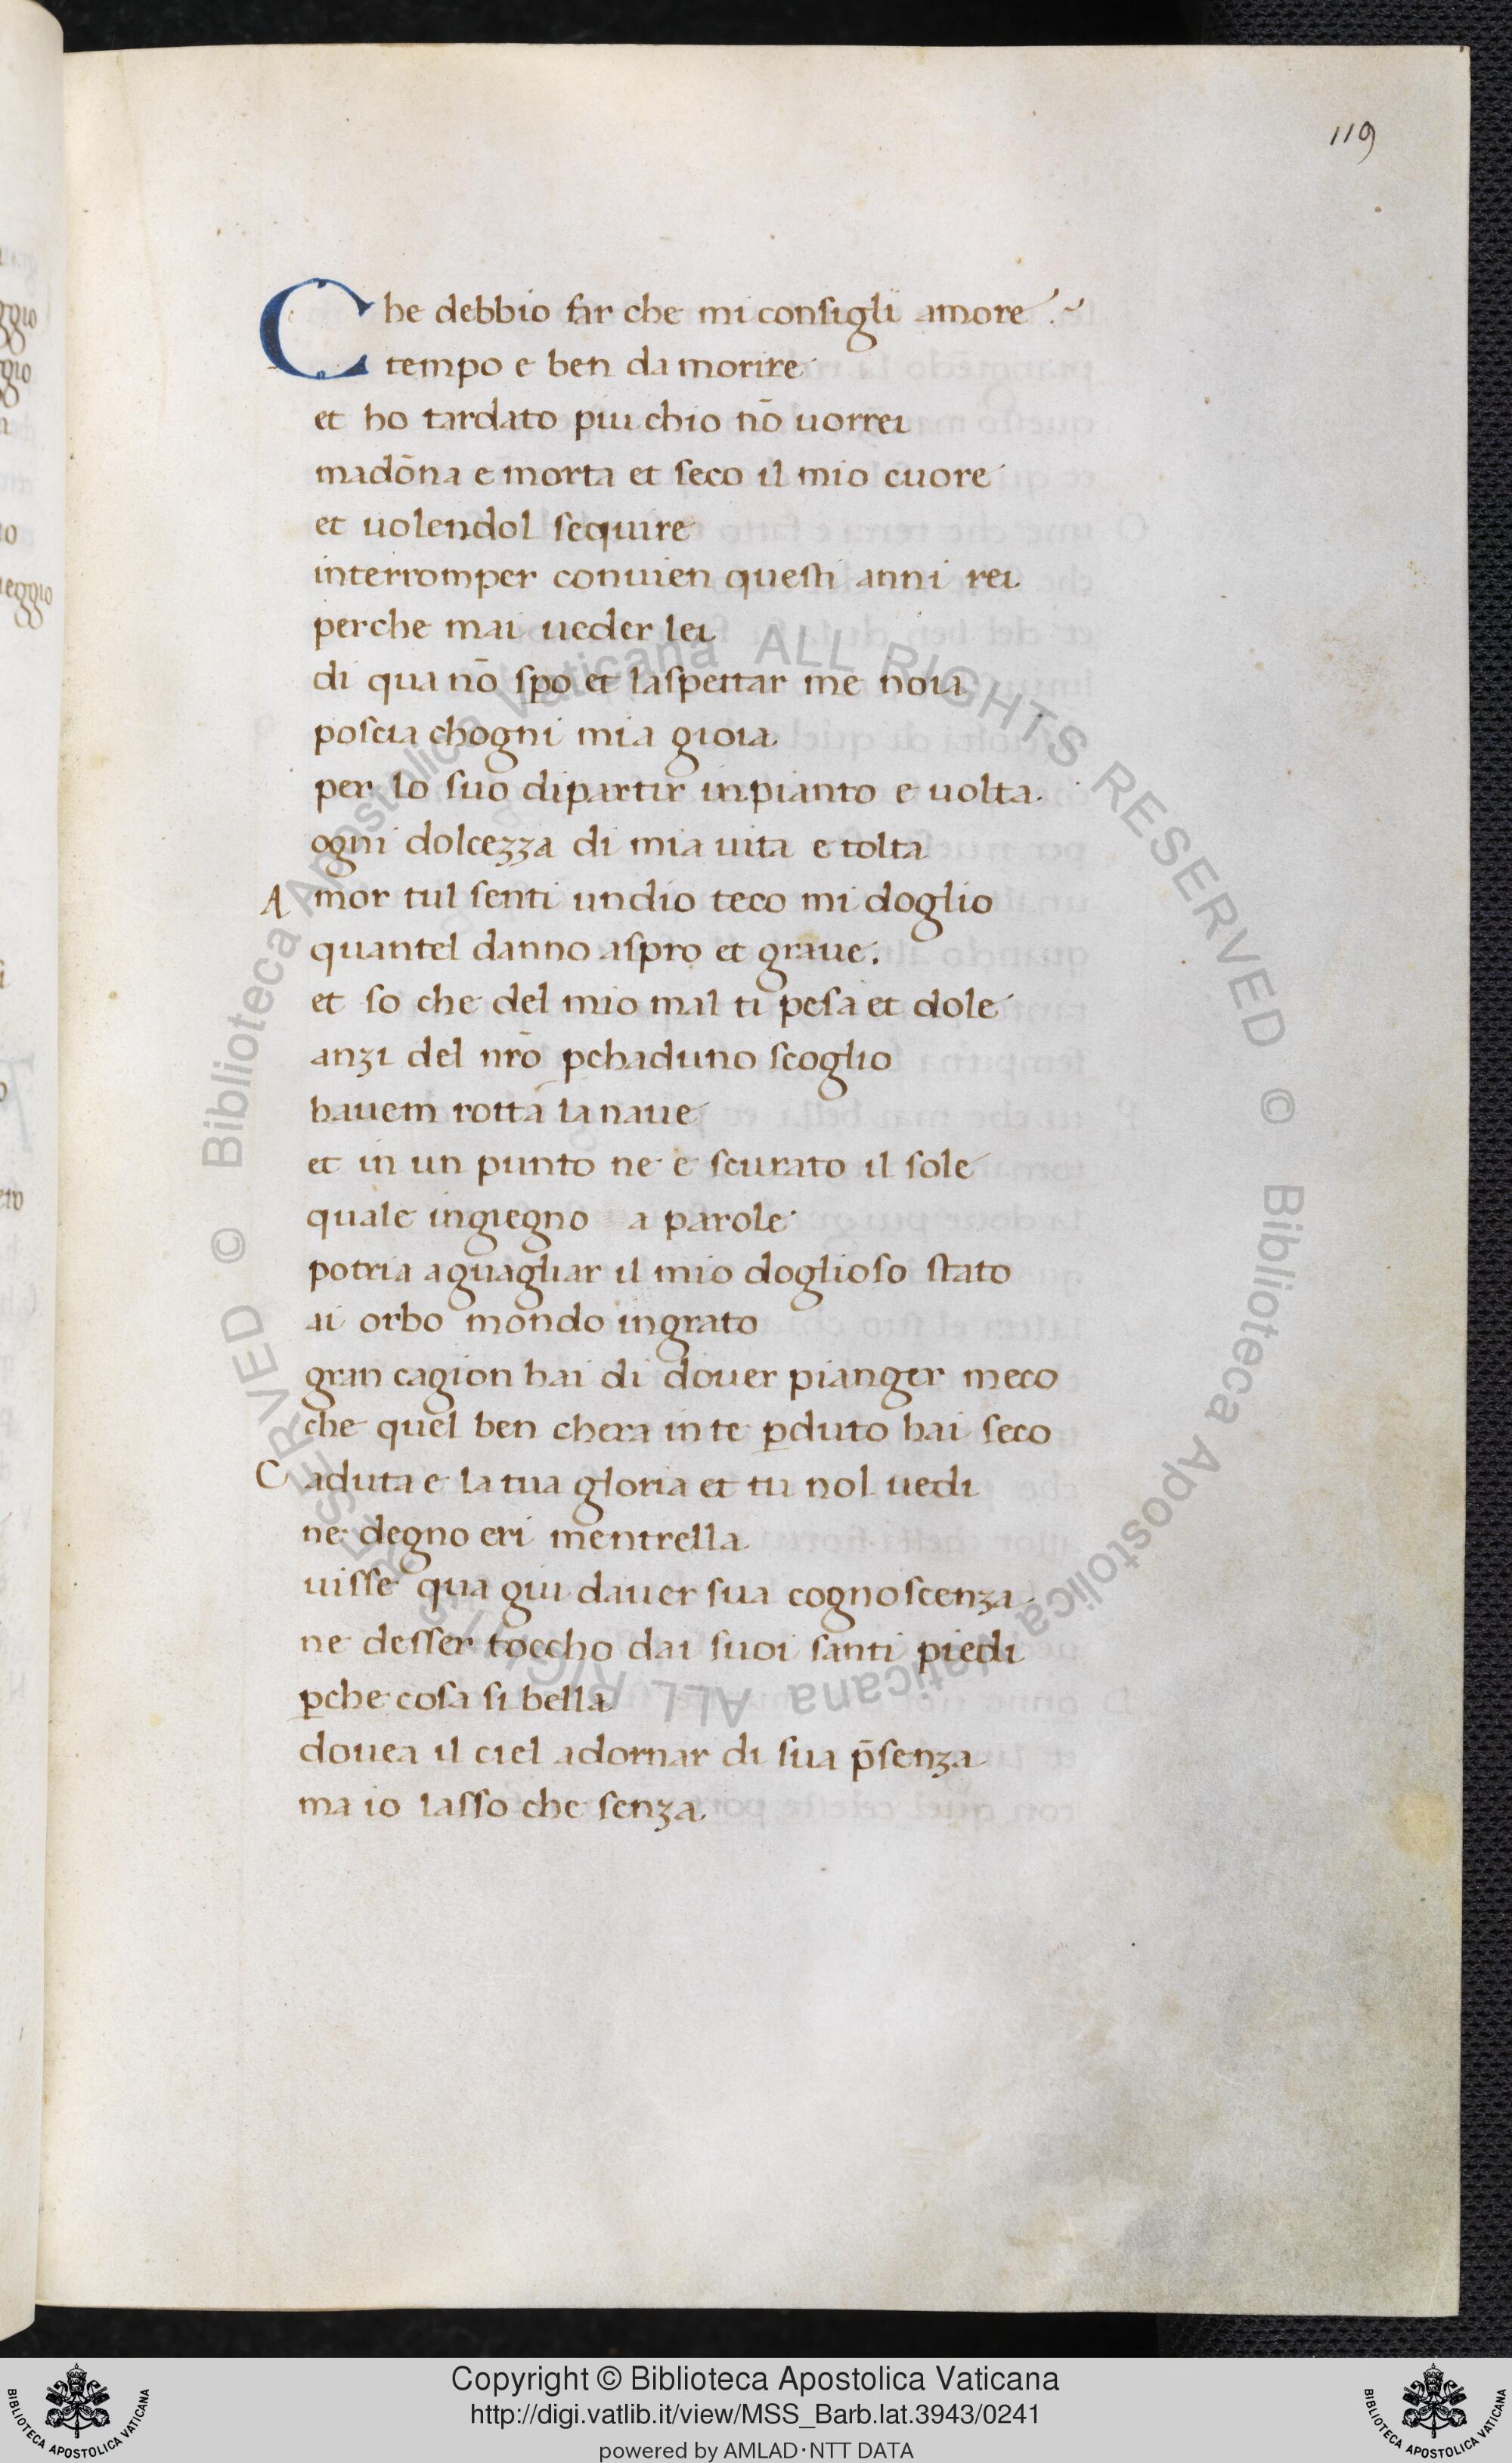 119
Che debbio far che mi consigli amore?~
tempo e ben da morire
et ho tardato piu chio nō uorrei
madōna e morta et seco il mio cuore
et uolendol sequire
interromper conuien questi anni rei
perche mai ueder lei
di qua nō spo et laspettar me noia
poscia chogni mia gioia
per lo suo dipartir in pianto e uolta
ogni dolcezza di mia uita e tolta
Amor tul senti undio teco mi doglio
quantel danno aspro et graue.
et so che del mio mal ti pesa et dole
anzi del nrō pchaduno scoglio
hauem rotta la naue
et in un punto ne e scurato il sole
quale ingiegno a parole
potria aguagliar il mio doglioso stato
ai orbo mondo ingrato
gran cagion hai di douer pianger meco
che quel ben chera in te pduto hai seco
Caduta e la tua gloria et tu nol uedi
ne degno eri mentrella
uisse qua giu dauer sua cognoscenza
ne desser toccho dai suoi santi piedi
pche cosa si bella
douea il ciel adornar di sua p̄senza
ma io lasso che senza
© Biblioteca Apostolica Vaticana ALL RIGHTS RESERVED © Biblioteca Apostolica Vaticana ALL RIGHTS RESERVED
BIBLIOTECA APOSTOLICA VATICANA
Copyright © Biblioteca Apostolica Vaticana
http://digi.vatlib.it/view/MSS_Barb.lat.3943/0241
powered by AMLAD·NTT DATA
BIBLIOTECA APOSTOLICA VATICANA